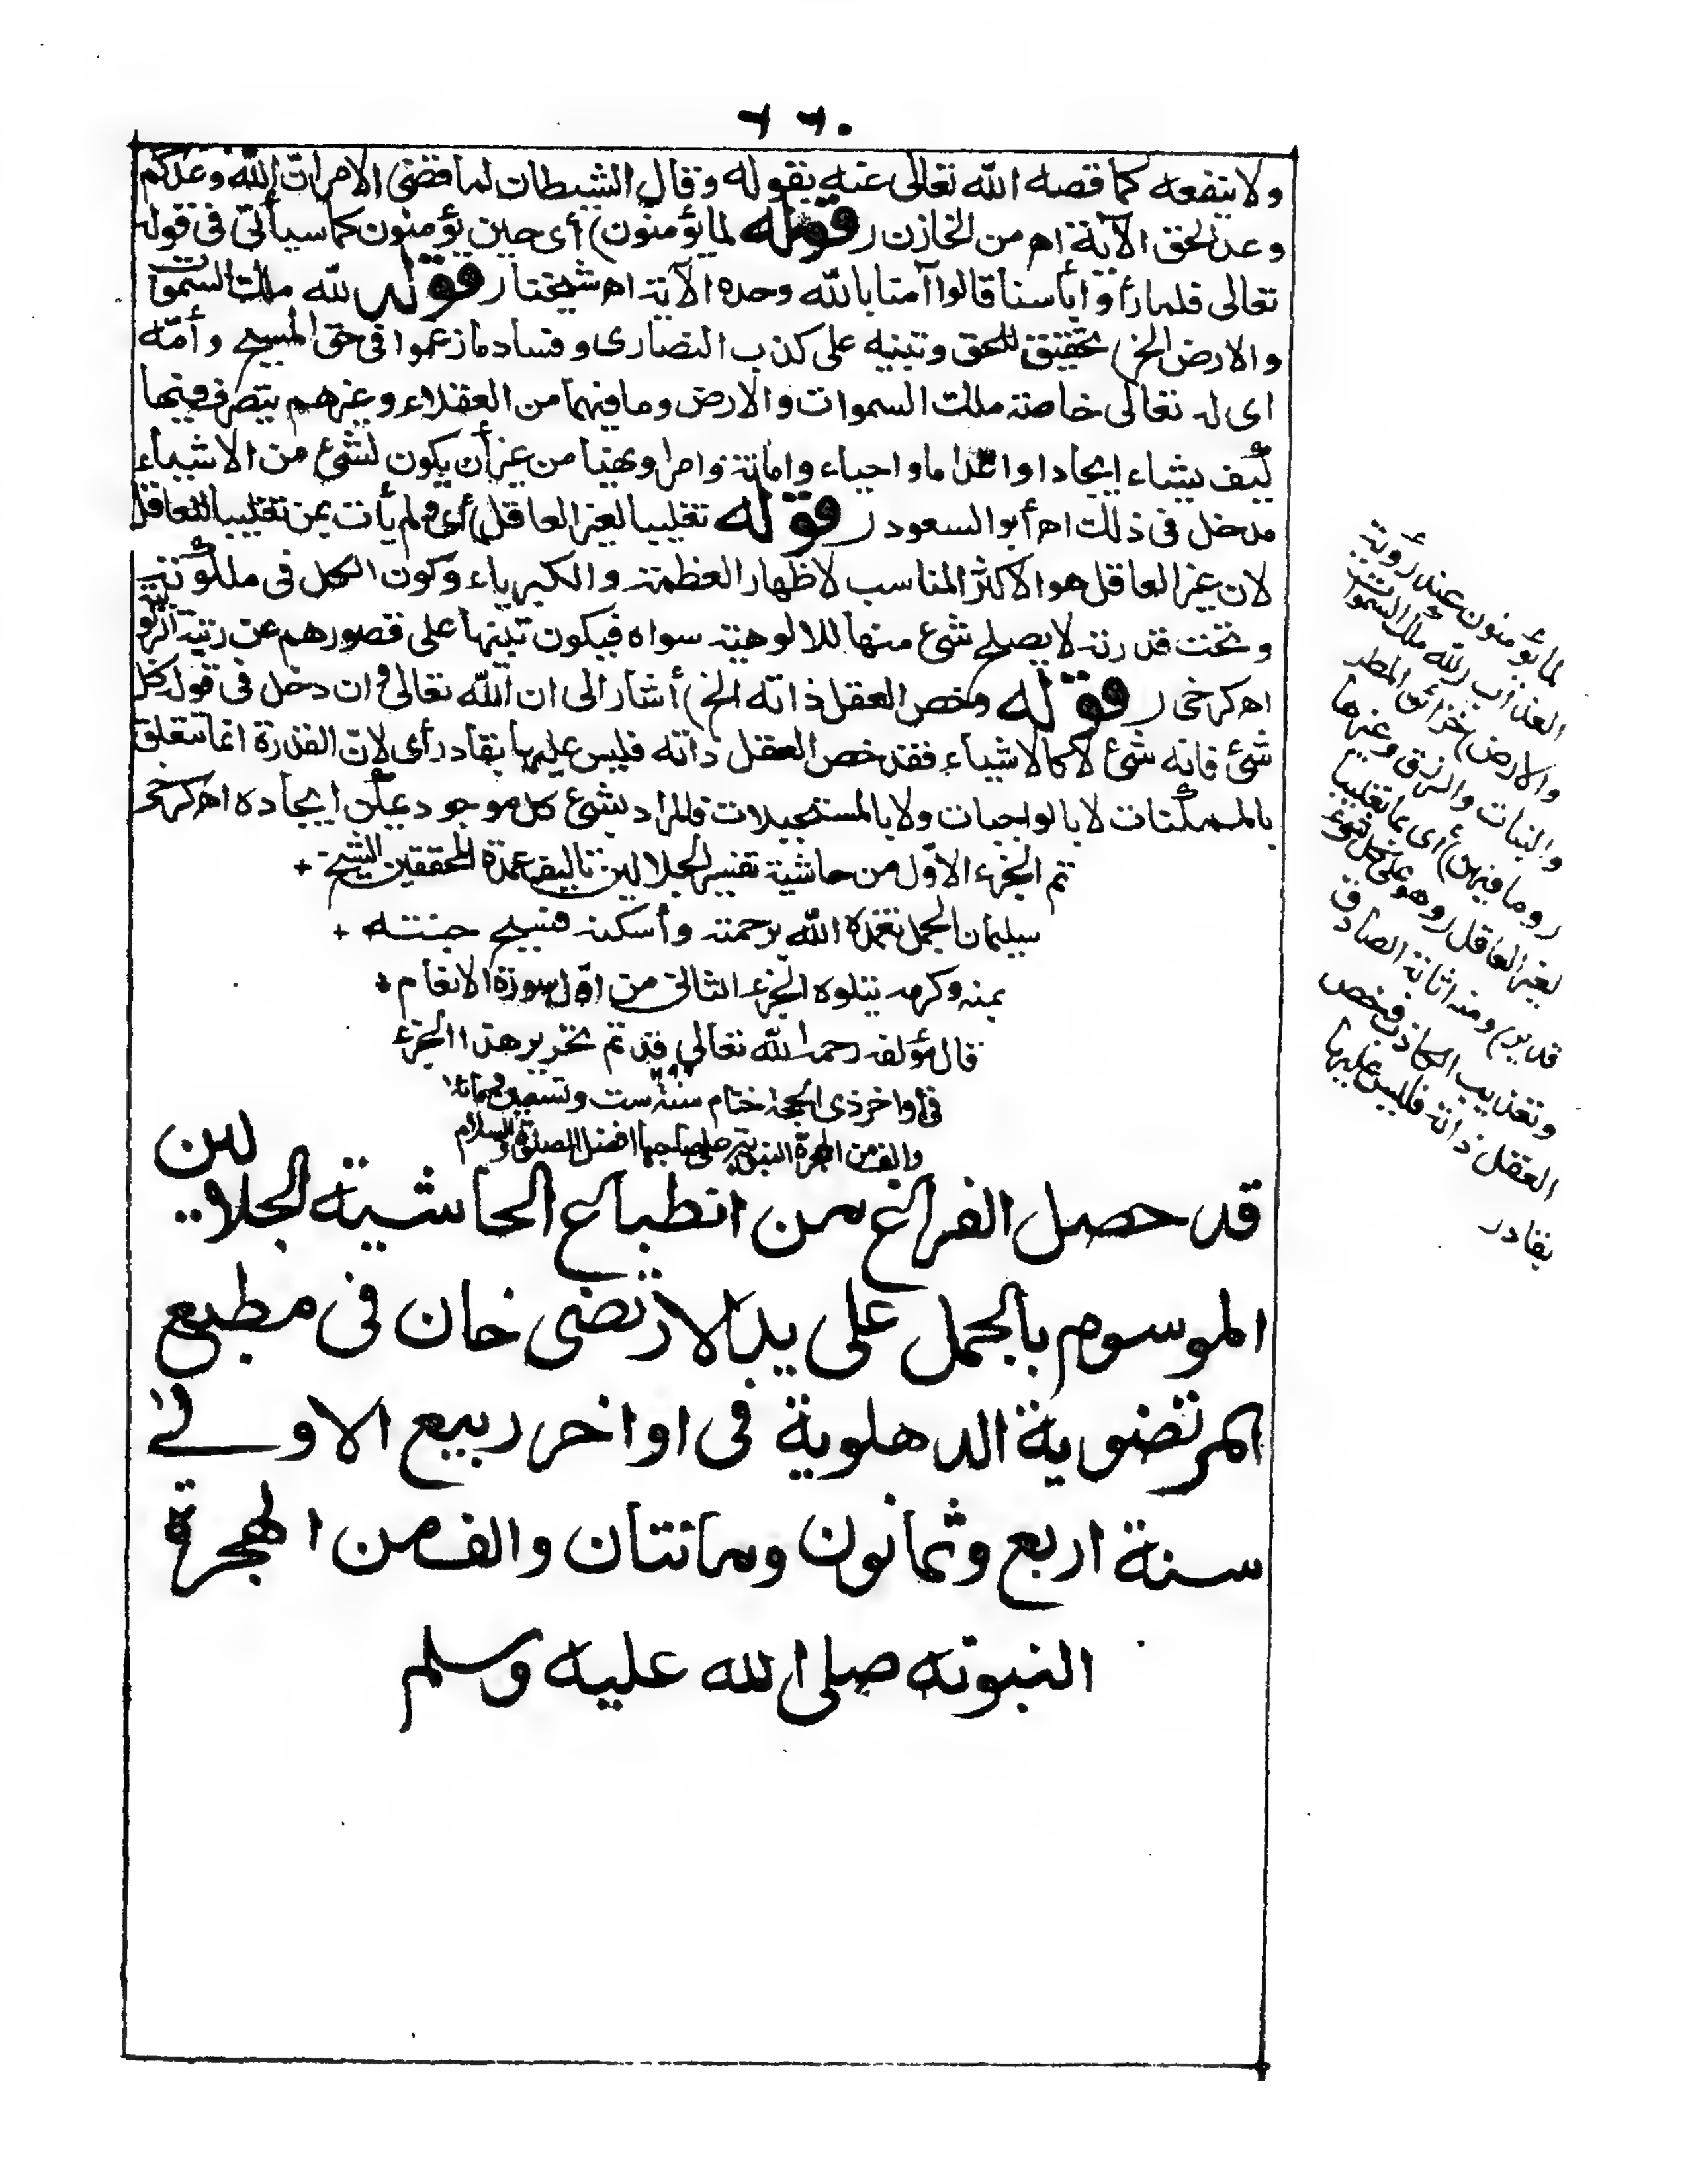 ٦٦٠
ولا ينفعه كما قصه الله تعالى عنه بقوله وقال الشيطان لما قضى الامر ان الله وعدكم
وعد الحق الآية اه من الخازن (قوله لما يؤمنون) أى حين يؤمنون كما سيأتى فى قوله
تعالى فلما رأوا بأسنا قالوا آمنا بالله وحده الآية اه شيخنا (قوله لله ملك السموات
والارض الخ) تحقيق للحق وتنبيه على كذب النصارى وفساد ما زعموا فى حق المسيح وأمّه
اى له تعالى خاصة ملك السموات والارض وما فيهما من العقلاء وغيرهم يتصرف فيها
كيف يشاء ايجادا واعداما واحياء واماتة وامرا ونهيا من غير أن يكون لشئ من الاشياء
مدخل فى ذلك اه أبو السعود (قوله تغليبا لغير العاقل) أى ولم يأت بمن تغليبا للعاقل
لان غير العاقل هو الاكثر المناسب لاظهار العظمة والكبرياء وكون الكل فى ملكوته
وتحت قدرته لا يصلح شئ منها للالوهية سواه فيكون تنبيها على قصورهم عن رتبة الربوبية
اه كرخى (قوله وخص العقل ذاته الخ) أشار الى ان الله تعالى وان دخل فى قوله كل
شئ فانه شئ لا كالاشياء فقد خص العقل ذاته فليس عليها بقادر أى لان القدرة انما تتعلق
بالممكنات لا بالواجبات ولا بالمستحيلات فالمراد بشئ كل موجود يمكن ايجاده اه كرخى
تم الجزء الاول من حاشية تفسير الجلالين تأليف عمدة المحققين الشيخ +
سليمان الجمل تغمده الله برحمته وأسكنه فسيح جنته +
بمنه وكرمه يتلوه الجزء الثانى من اوّل سورة الانعام +
قال مؤلفه رحمه الله تعالى قد تم تحرير هذا الجزء
فى أواخر ذى الحجة ختام سنة ست وتسعين ومائة
والف من الهجرة النبوية على صاحبها افضل الصلوة والسلام
قد حصل الفراغ من انطباع الحاشية الجلالين
الموسوم بالجمل على يد الارتضى خان فى مطبع
المرتضوية الدهلوية فى اواخر ربيع الاولى
سنة اربع وثمانون ومائتان والف من الهجرة
النبوته صلى الله عليه وسلم
لما يؤمنون عند رؤية
العذاب (لله ملك السموات
والارض) خزائن المطر
والنبات والرزق وغيرها
(وما فيهن) أى بما تغليبا
لغير العاقل (وهو على كل شئ
قدير) ومنه اثابة الصادق
وتعذيب الكاذب وخص
العقل ذاته فليس عليها
بقادر